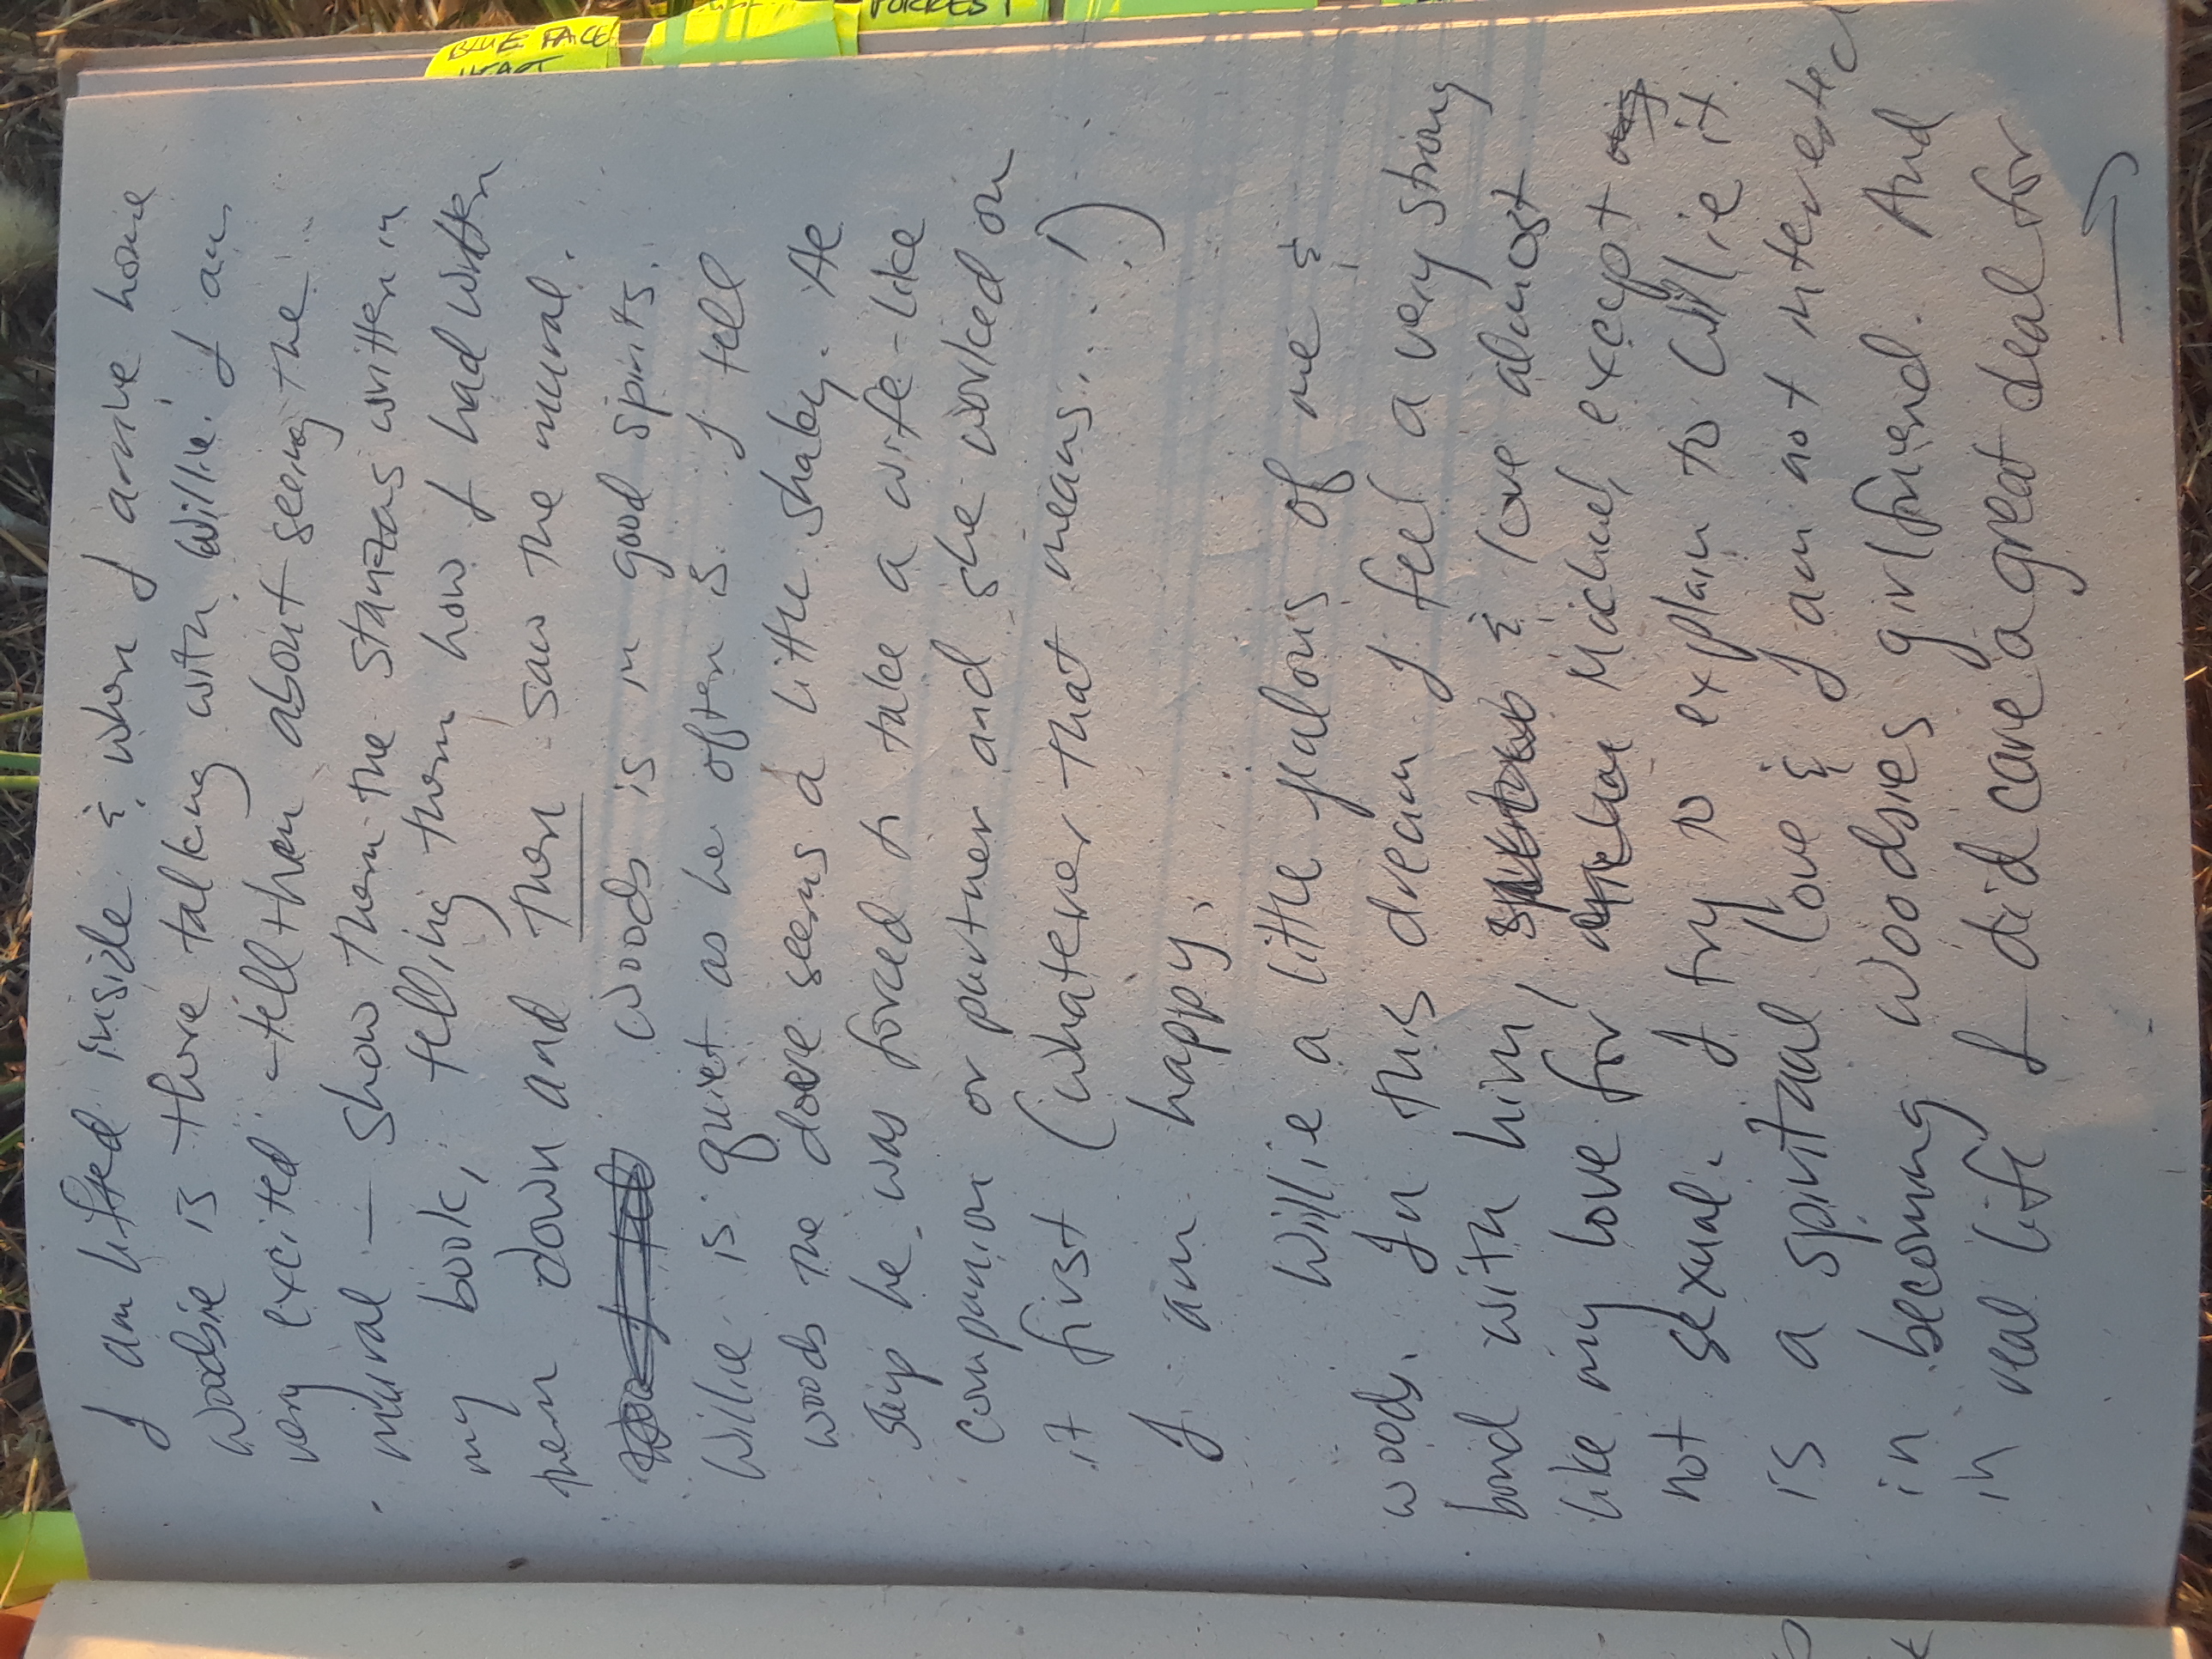 BLUE FACE
HEART
FORREST
I am lifted inside & when I arrive home
Woodsie is there talking with Willie. I am
very excited - tell them about seeing the
mural — show them the stanzas written in
my book, telling them how I had written
them down and then saw the mural.
Woods is in good spirits.
Willie is quiet as he often is. I tell
Woods the dove seems a little shaky. He
says he was forced to take a wife-like
companion or partner and she worked on
it first (whatever that means...!)
I am happy.
Willie a little jealous of me &
woods. In this dream I feel a very strong
bond with him, & love almost
like my love for Michael, except
not sexual. I try to explain to Willie it
is a spiritual love & I am not interested
in becoming Woodsies girlfriend. And
in real life I did care a great deal for